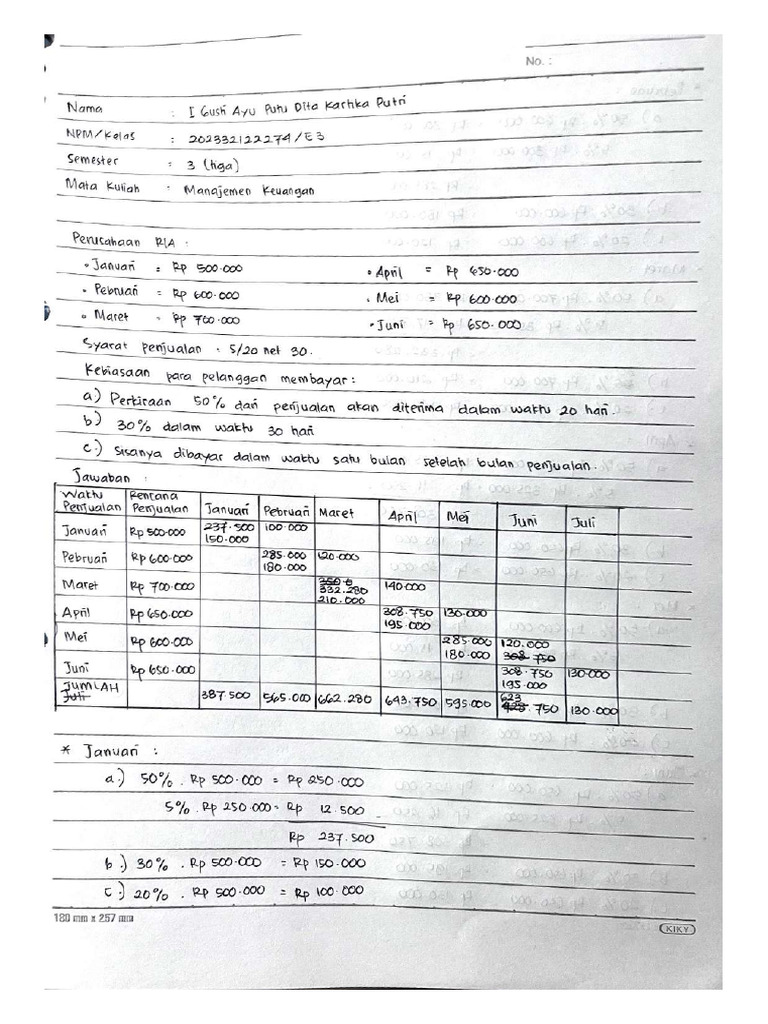 No. :
Nama : I Gusti Ayu Putu Dita Kartika Putri
NPM/Kelas : 202332122274/E3
Semester : 3 (tiga)
Mata Kuliah : Manajemen Keuangan
Perusahaan RIA :
• Januari = Rp 500.000 • April = Rp 650.000
• Pebruari = Rp 600.000 • Mei = Rp 600.000
• Maret = Rp 700.000 • Juni = Rp 650.000
Syarat penjualan : 5/20 net 30.
Kebiasaan para pelanggan membayar :
a.) Perkiraan 50% dari penjualan akan diterima dalam waktu 20 hari.
b) 30% dalam waktu 30 hari
c.) Sisanya dibayar dalam waktu satu bulan setelah bulan penjualan.
Jawaban :
Waktu Penjualan Rencana Penjualan Januari Pebruari Maret April Mei Juni Juli
Januari Rp 500.000 237.500 100.000
150.000
Pebruari Rp 600.000 285.000 120.000
180.000
Maret Rp 700.000 332.280 140.000
210.000
April Rp 650.000 308.750 130.000
195.000
Mei Rp 600.000 285.000 120.000
180.000 308 750
Juni Rp 650.000 308.750 130.000
195.000
JUMLAH 387.500 565.000 662.280 643.750 595.000 623.750 130.000
Juli
* Januari :
a.) 50% . Rp 500.000 = Rp 250.000
5% . Rp 250.000 = Rp 12.500
Rp 237.500
b.) 30% . Rp 500.000 = Rp 150.000
c.) 20% . Rp 500.000 = Rp 100.000
180 mm x 257 mm
KIKY